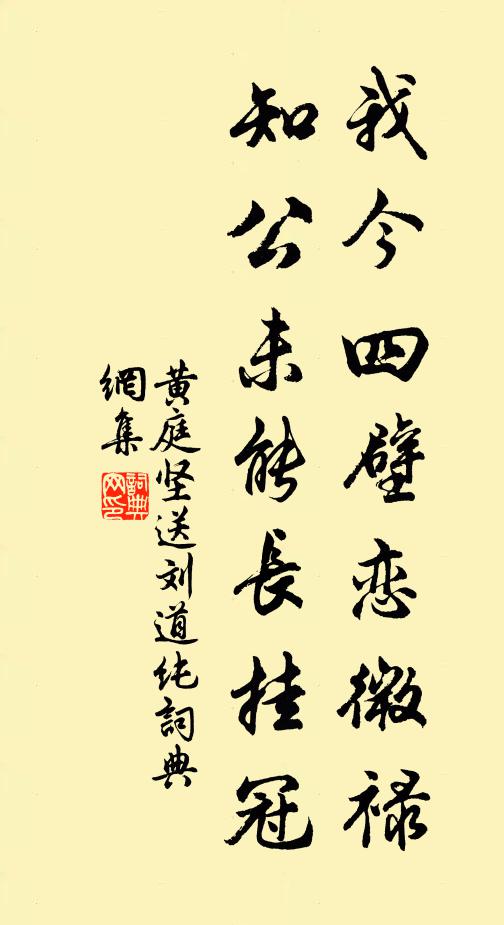 我今四壁恋微禄
知公未能長挂冠
黄庭坚送刘道纯詞典
網集
詞典
网印